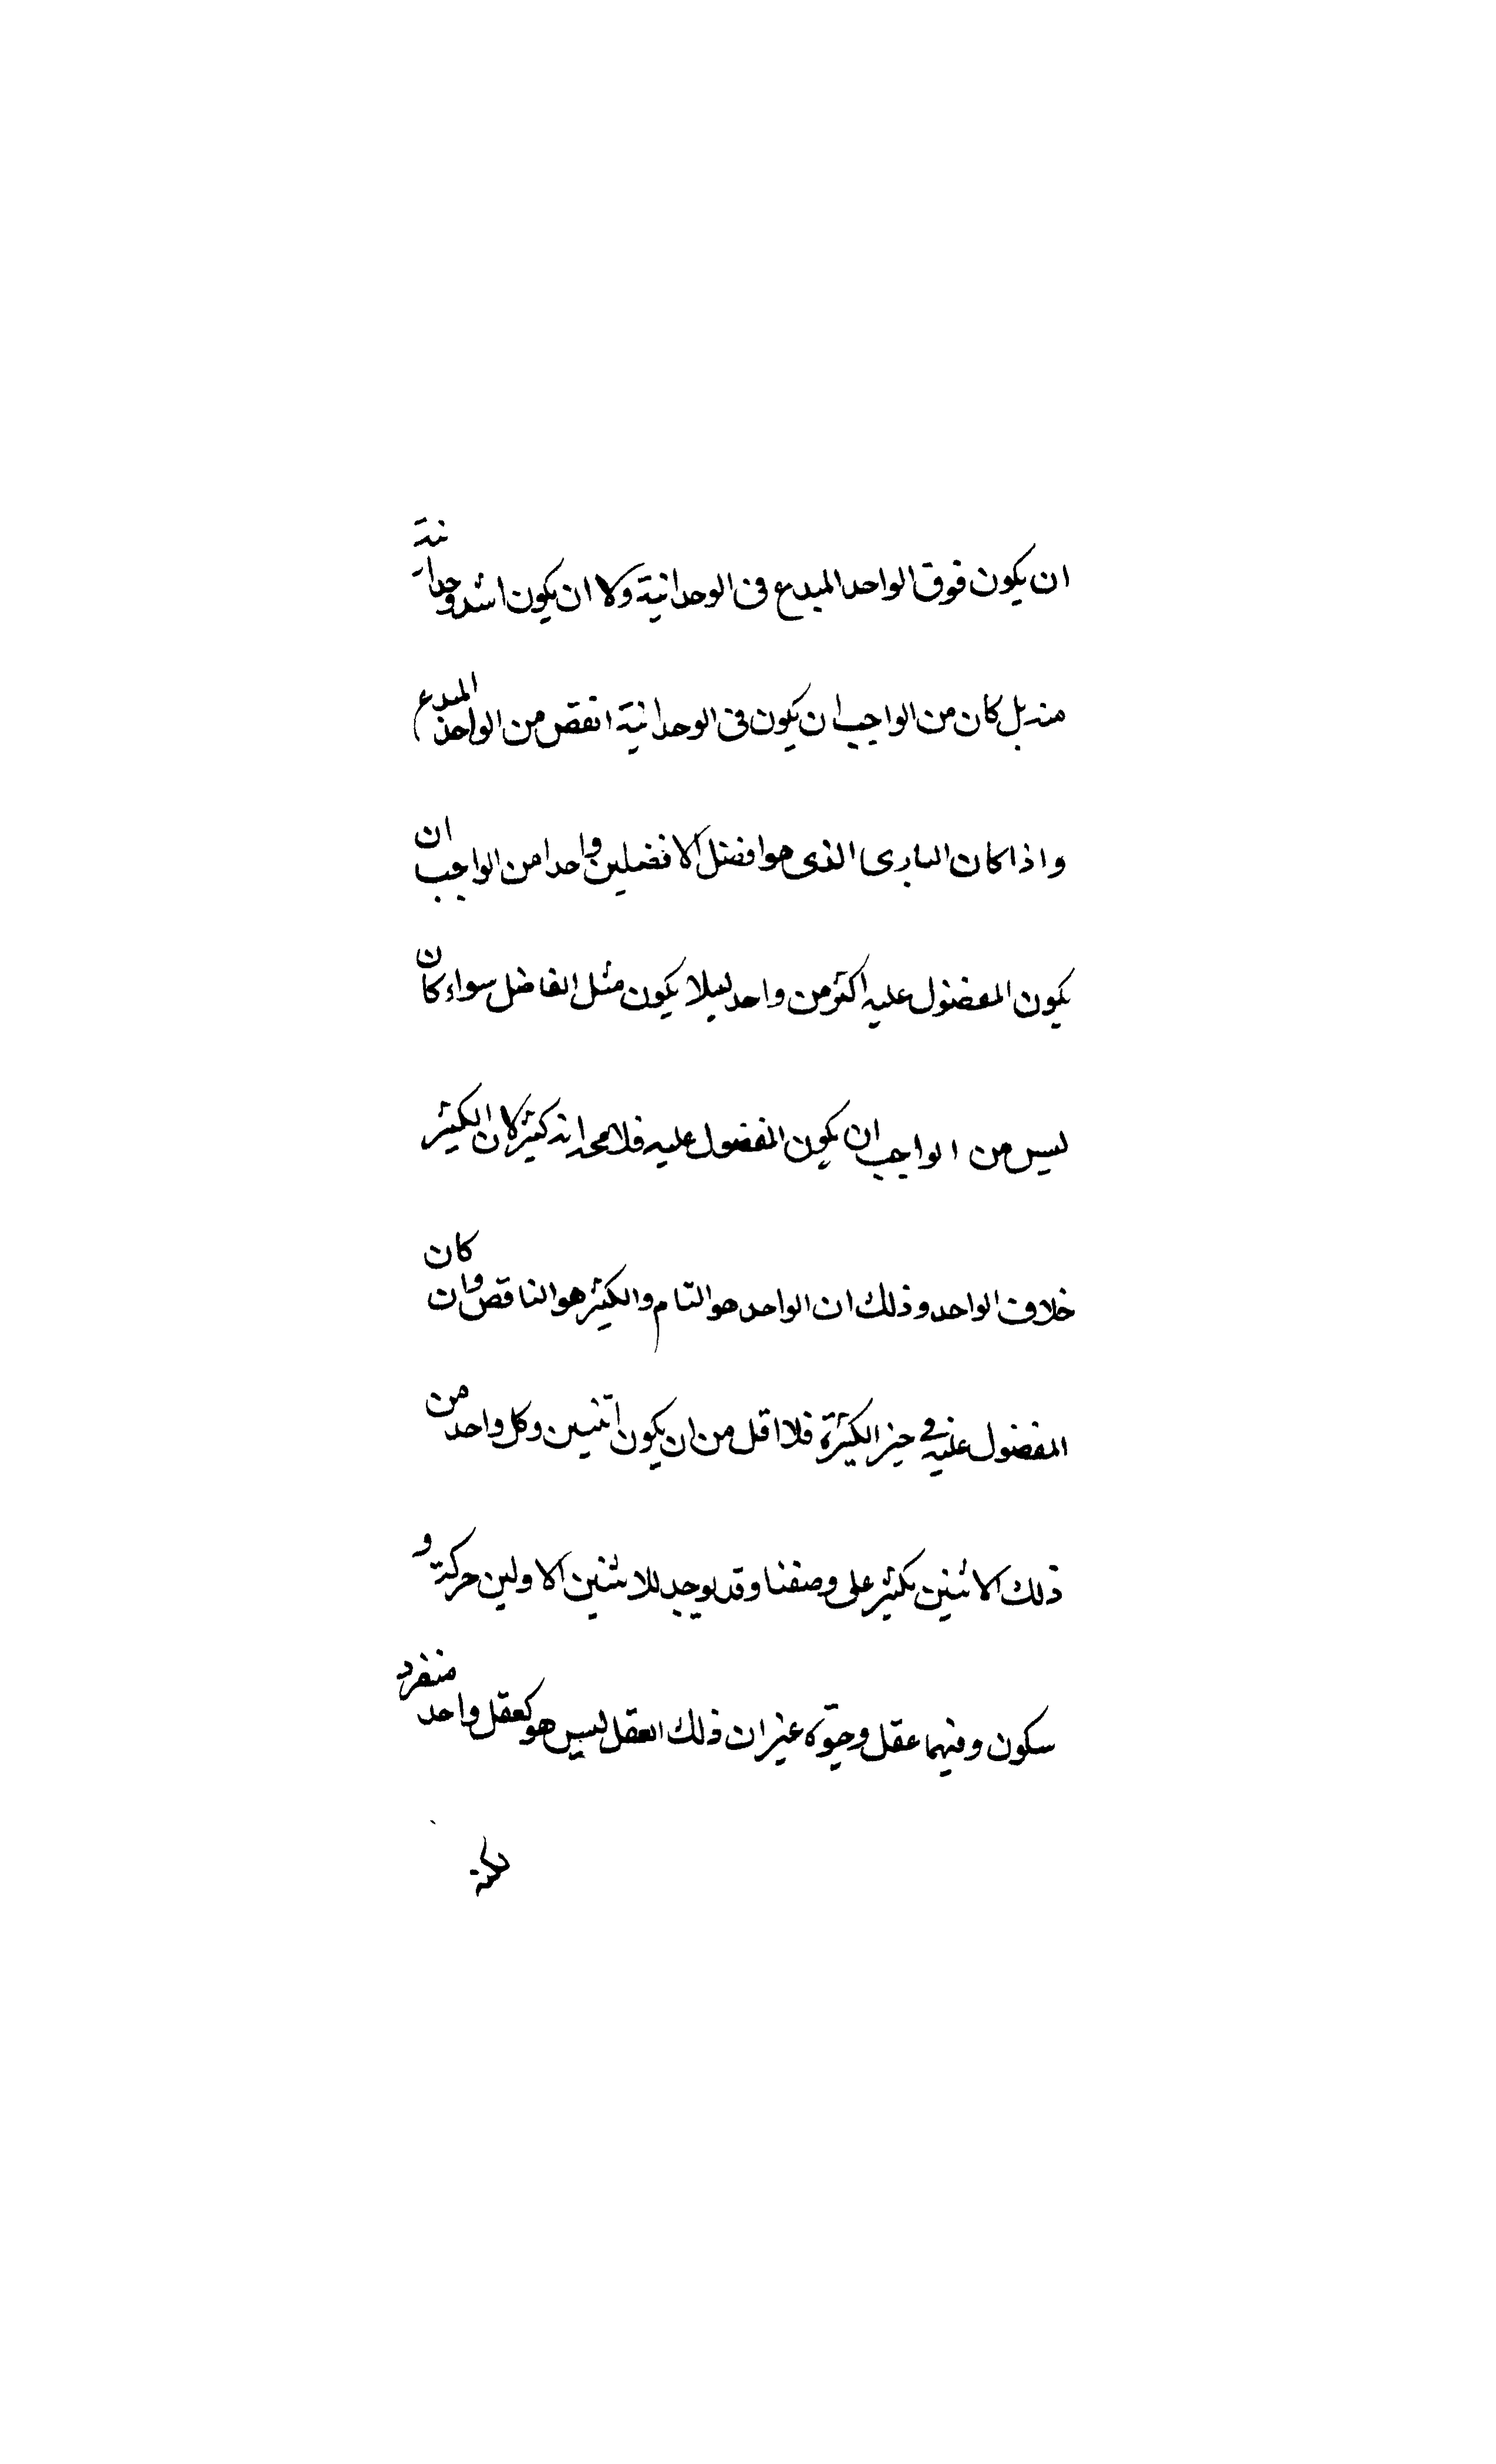 ان يكون فوق الواحد المبدع فى الوحدانية ولا ان يكون اشد وحدانية
منه بل كان من الواجب ان يكون فى الوحدانية انقص من الواحد المبدع
واذا كان البارى الذى هو افضل الافضلين واحدا من الواجب ان
يكون المفضول عليه اكثر من واحد ليلا يكون مثل الفاضل سواء كان
ليس من الواجب ان يكون المفضول عليه فلا محد انه كثير لان الكثير
خلاف الواحد وذلك ان الواحد هو التام والكثير هو الناقص وان كان
المفضول عليه فى حيز الكثرة فلا اقل من ان يكون اثنين وكل واحد من
ذلك الاثنين يكثر على وصفنا وقد يوجد للاثنين الاولين حركة و
سكون وفيهما عقل وحيوة غير ان ذلك العقل ليس هو كعقل واحد منفرد
لكنه